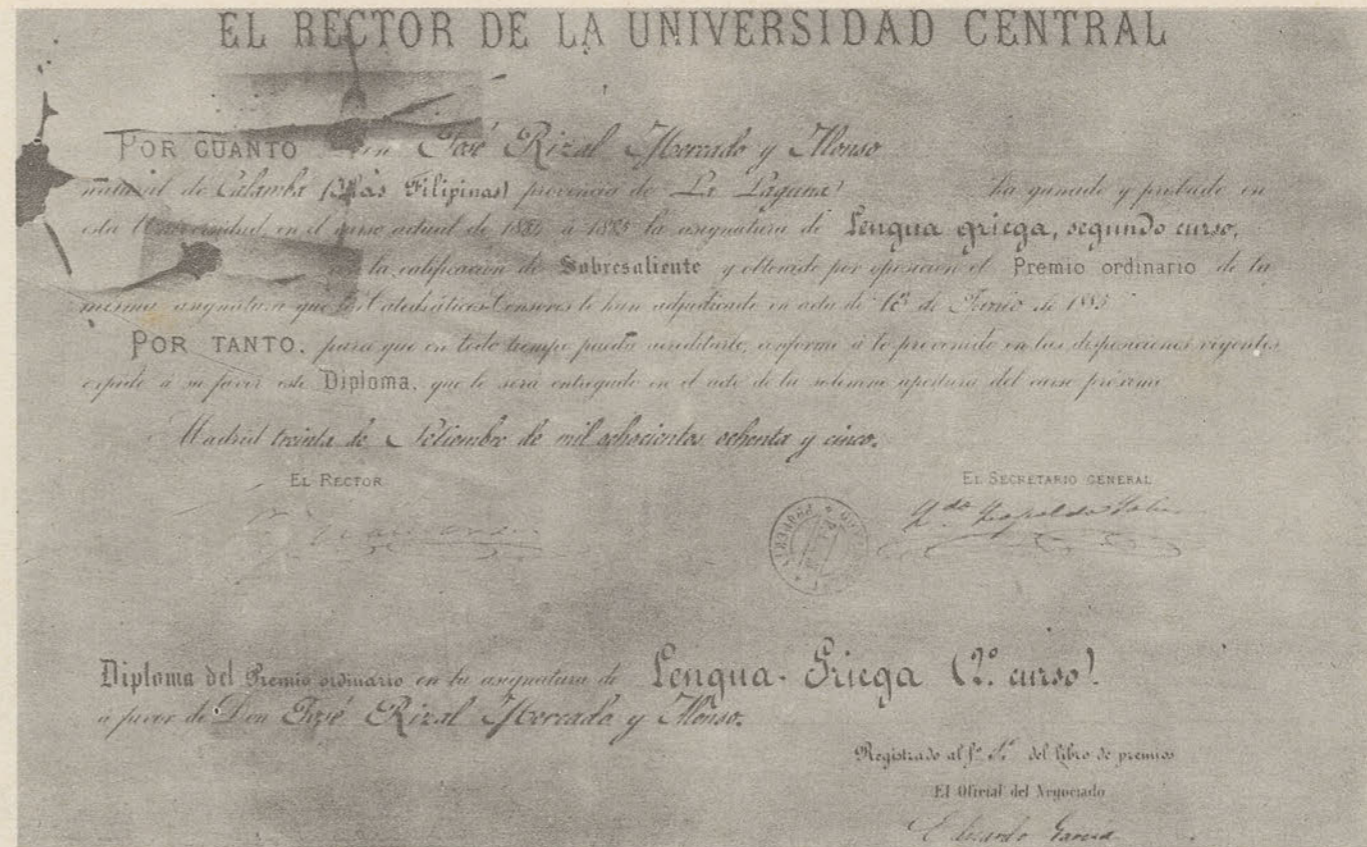 EL RECTOR DE LA UNIVERSIDAD CENTRAL
POR CUANTO Don José Rizal Mercado y Alonso
natural de Calamba (Islas Filipinas) provincia de La Laguna ha ganado y probado en
esta Universidad, en el curso actual de 1884 a 1885 la asignatura de Lengua griega, segundo curso,
con la calificación de Sobresaliente y obtenido por oposición el Premio ordinario de la
misma asignatura que los Catedráticos Censores le han adjudicado en acta de de Junio de 1885
POR TANTO, para que en todo tiempo pueda acreditarlo, conforme á lo prevenido en las disposiciones vigentes
expido á su favor este Diploma, que le será entregado en el acto de la solemne apertura del curso próximo
Madrid treinta de Setiembre de mil ochocientos ochenta y cinco.
EL RECTOR
EL SECRETARIO GENERAL
Ldo. Leopoldo
Diploma del Premio ordinario en la asignatura de Lengua-Griega (2.º curso)
a favor de Don José Rizal Mercado y Alonso.
Registrado al fº del libro de premios
El Oficial del Negociado
Eduardo García